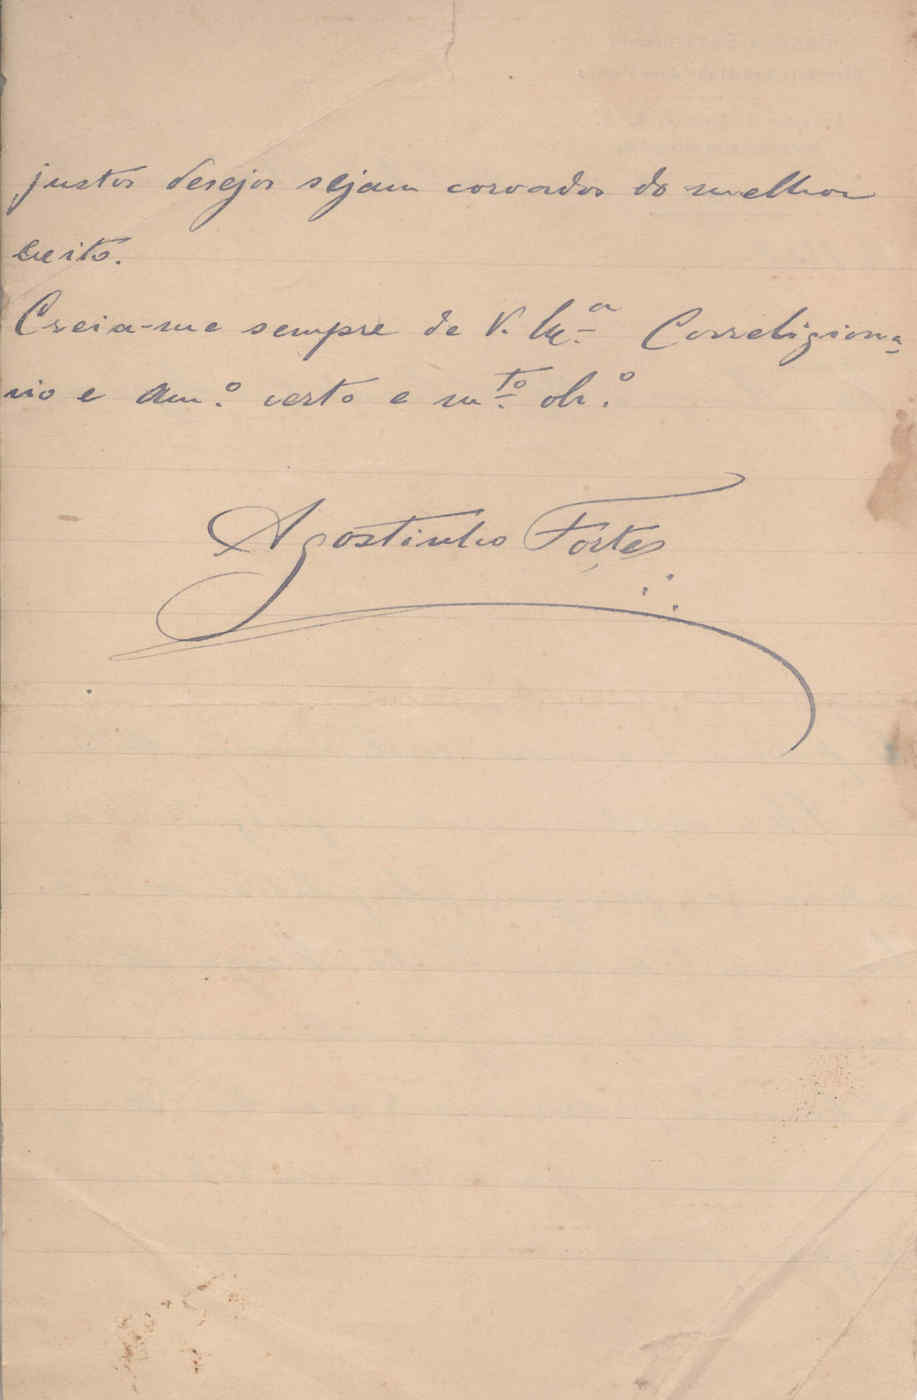 justos desejos sejam coroados do melhor
exito.
Creia-me sempre de V. Ex.ª Correligiona-
rio e am.º certo e m.to obr.º
Agostinho Fortes